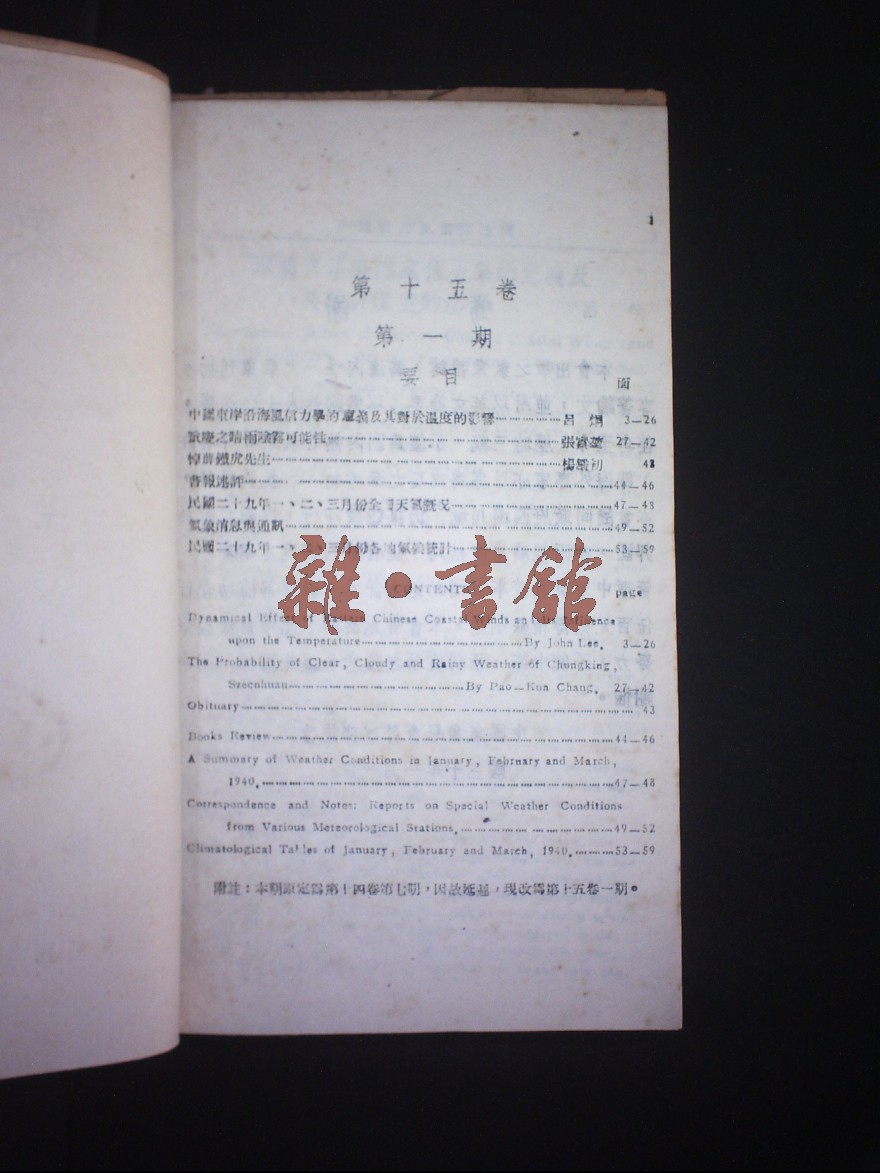 1
第十五卷
第一期
要目 面
中國東岸沿海風信力學的 及其對於溫度的影響 呂炯 3—26
重慶之晴雨陰霧可能性 張寶堃 27—42
悼蔣鐵虎先生 楊 初 43
書報述評 44—46
民國二十九年一、二、三月份全國天氣概況 47—48
氣象消息與通訊 49—52
民國二十九年一、二、三月份各地氣候統計 53—59
雜·書館
CONTENT page
Dynamical Effect of Certain Chinese Coastal Winds and Its Influence
upon the Temperature By John Lee. 3—26
The Probability of Clear, Cloudy and Rainy Weather of Chungking,
Szechuan By Pao—Kun Chang. 27—42
Obituary 43
Books Review 44—46
A Summary of Weather Conditions in January, February and March,
1940. 47—48
Correspondence and Notes: Reports on Special Weather Conditions
from Various Meteorological Stations. 49—52
Climatological Tables of January, February and March, 1940. 53—59
附註：本期原定為第十四卷第七期，因故延遲，現改為第十五卷一期。